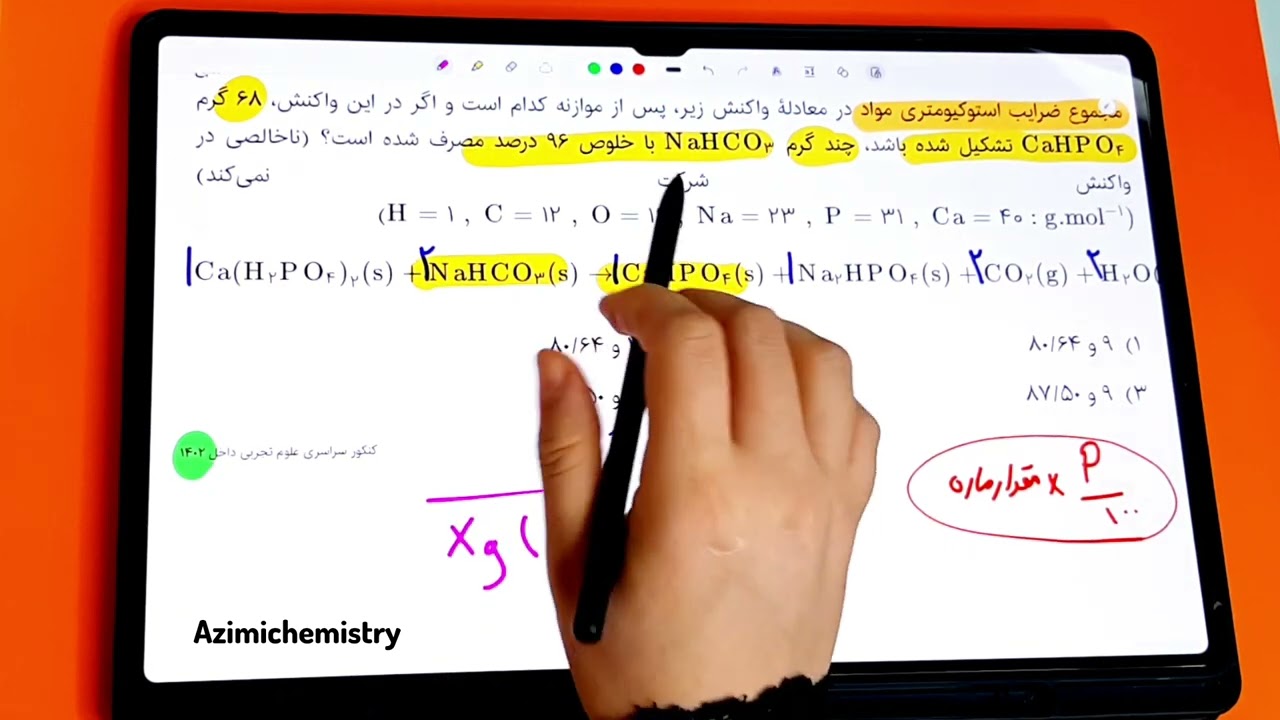 مجموع ضرایب استوکیومتری مواد در معادلهٔ واکنش زیر، پس از موازنه کدام است و اگر در این واکنش، ۶۸ گرم
CaHPO۴ تشکیل شده باشد، چند گرم NaHCO۳ با خلوص ۹۶ درصد مصرف شده است؟ (ناخالصی در
واکنش شرکت نمی‌کند)
(H = ۱ , C = ۱۲ , O = ۱ , Na = ۲۳ , P = ۳۱ , Ca = ۴۰ : g.mol⁻¹)
۱Ca(H۲PO۴)۲(s) + ۲NaHCO۳(s) → ۱CaHPO۴(s) + ۱Na۲HPO۴(s) + ۲CO۲(g) + ۲H۲O(
۱) ۹ و ۸۰/۶۴
و ۸۰/۶۴
۳) ۹ و ۸۷/۵۰
کنکور سراسری علوم تجربی داخل ۱۴۰۲
مقدار ماده × P/۱۰۰
x g (
Azimichemistry